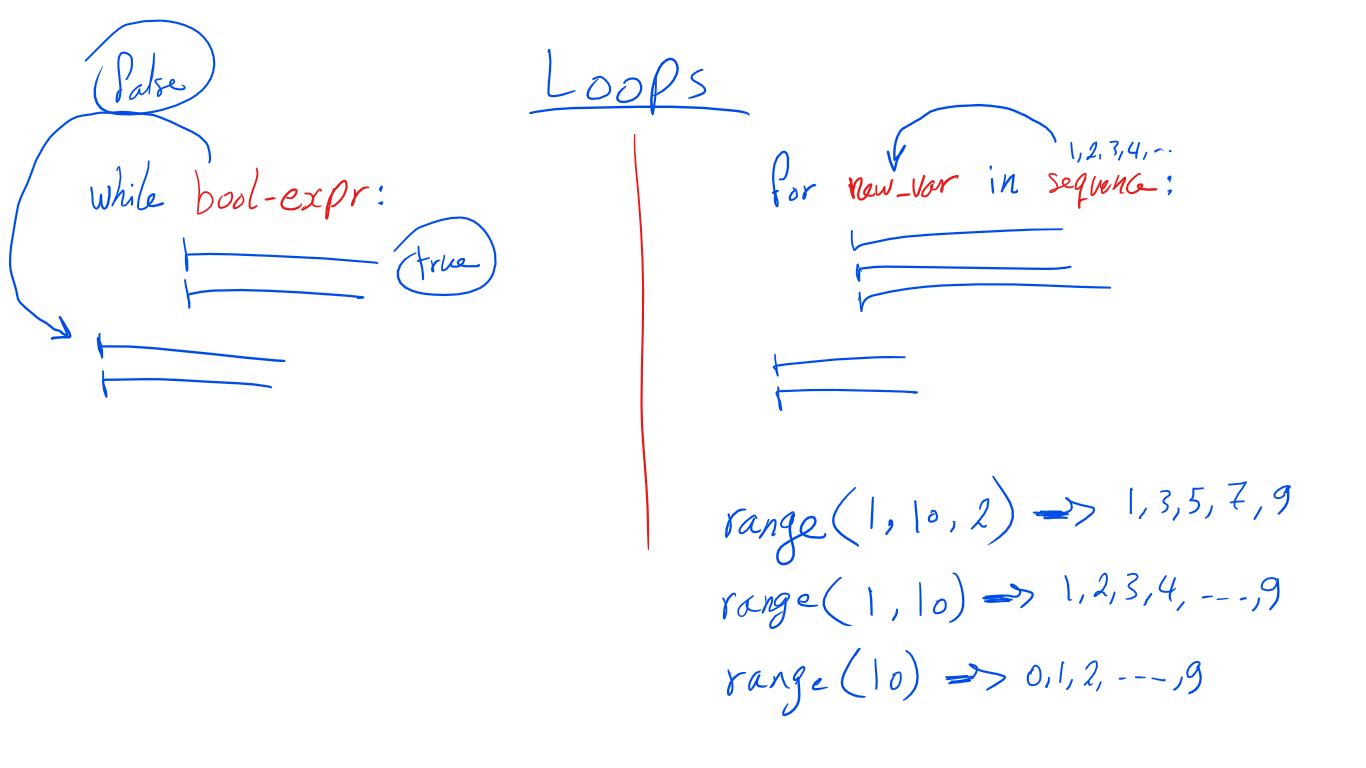 Loops
false
while bool-expr:
true
1,2,3,4,...
for new_var in sequence:
range(1, 10, 2) => 1,3,5,7,9
range(1,10) => 1,2,3,4, ----,9
range(10) => 0,1,2, ----,9